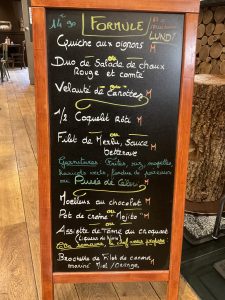 14€90
FORMULE
LUNDI
Quiche aux oignons M
ou
Duo de Salade de choux
Rouge et comté
ou
Velouté de Carottes M
1/2 Coquelet Rôti M
ou
Filet de Merlu, Sauce
betterave M
Garnitures: Frites, riz,
haricots verts, fondue de poireaux
ou Purée de Céleri
Moelleux au chocolat M
ou
Pot de crème "Mojito" M
ou
Assiette de Tome du
En semaine, le chef vous propose
Brochette de Filet de canard
mariné Miel/Orange M